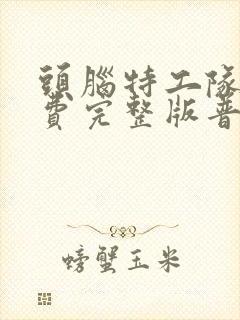 頭腦特工隊
費完整版普
螃蟹玉米